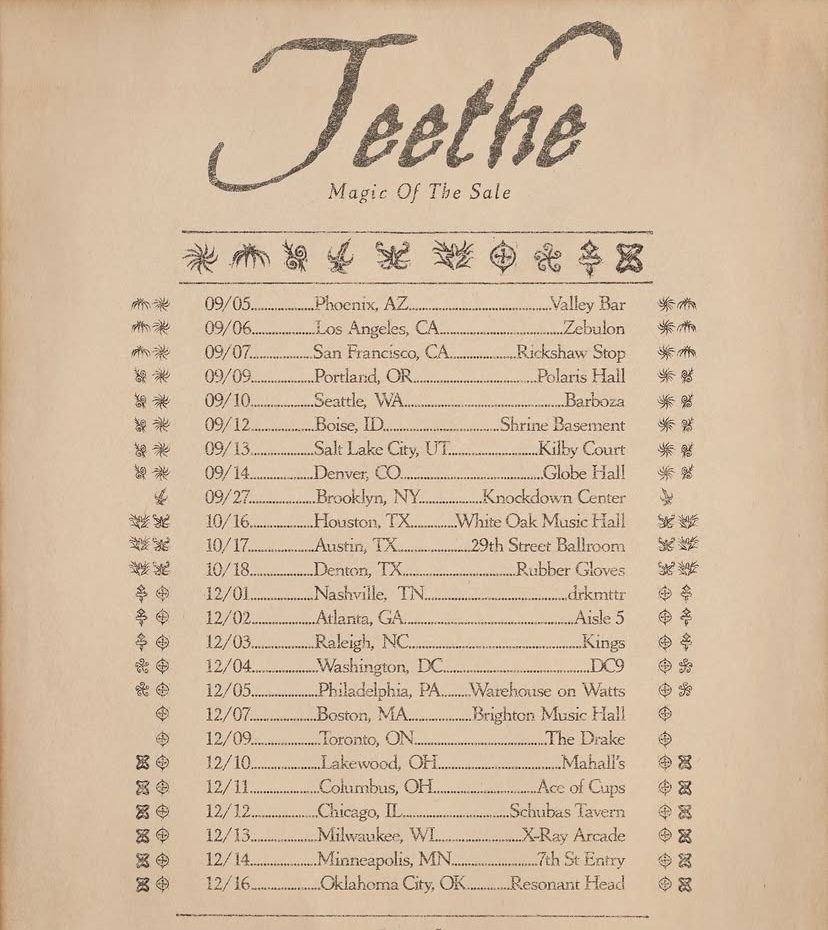 Teethe
Magic Of The Sale
09/05....................Phoenix, AZ..............................................Valley Bar
09/06....................Los Angeles, CA........................................Zebulon
09/07....................San Francisco, CA......................Rickshaw Stop
09/09....................Portland, OR.........................................Polaris Hall
09/10....................Seattle, WA....................................................Barboza
09/12....................Boise, ID......................................Shrine Basement
09/13....................Salt Lake City, UT.............................Kilby Court
09/14....................Denver, CO..............................................Globe Hall
09/27....................Brooklyn, NY....................Knockdown Center
10/16....................Houston, TX...............White Oak Music Hall
10/17....................Austin, TX........................29th Street Ballroom
10/18....................Denton, TX......................................Rubber Gloves
12/01....................Nashville, TN..............................................drkmttr
12/02....................Atlanta, GA........................................................Aisle 5
12/03....................Raleigh, NC........................................................Kings
12/04....................Washington, DC................................................DC9
12/05....................Philadelphia, PA.........Warehouse on Watts
12/07....................Boston, MA.....................Brighton Music Hall
12/09....................Toronto, ON..........................................The Drake
12/10....................Lakewood, OH........................................Mahall's
12/11....................Columbus, OH..................................Ace of Cups
12/12....................Chicago, IL...................................Schubas Tavern
12/13....................Milwaukee, WI...........................X-Ray Arcade
12/14....................Minneapolis, MN...........................7th St Entry
12/16....................Oklahoma City, OK.............Resonant Head